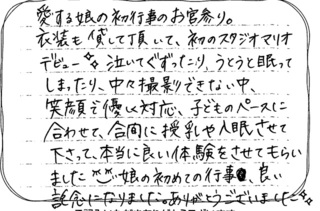 愛する娘の初行事のお宮参り。
衣装も貸して頂いて、初のスタジオマリオ
デビュー✨泣いてぐずったり、うとうと眠って
しまったり、中々撮影できない中、
笑顔で優しい対応、子どものペースに
合わせて、合間に授乳や入眠させて
下さって、本当に良い体験をさせてもらい
ました 娘の初めての行事、良い
記念になりました。ありがとうございました✨